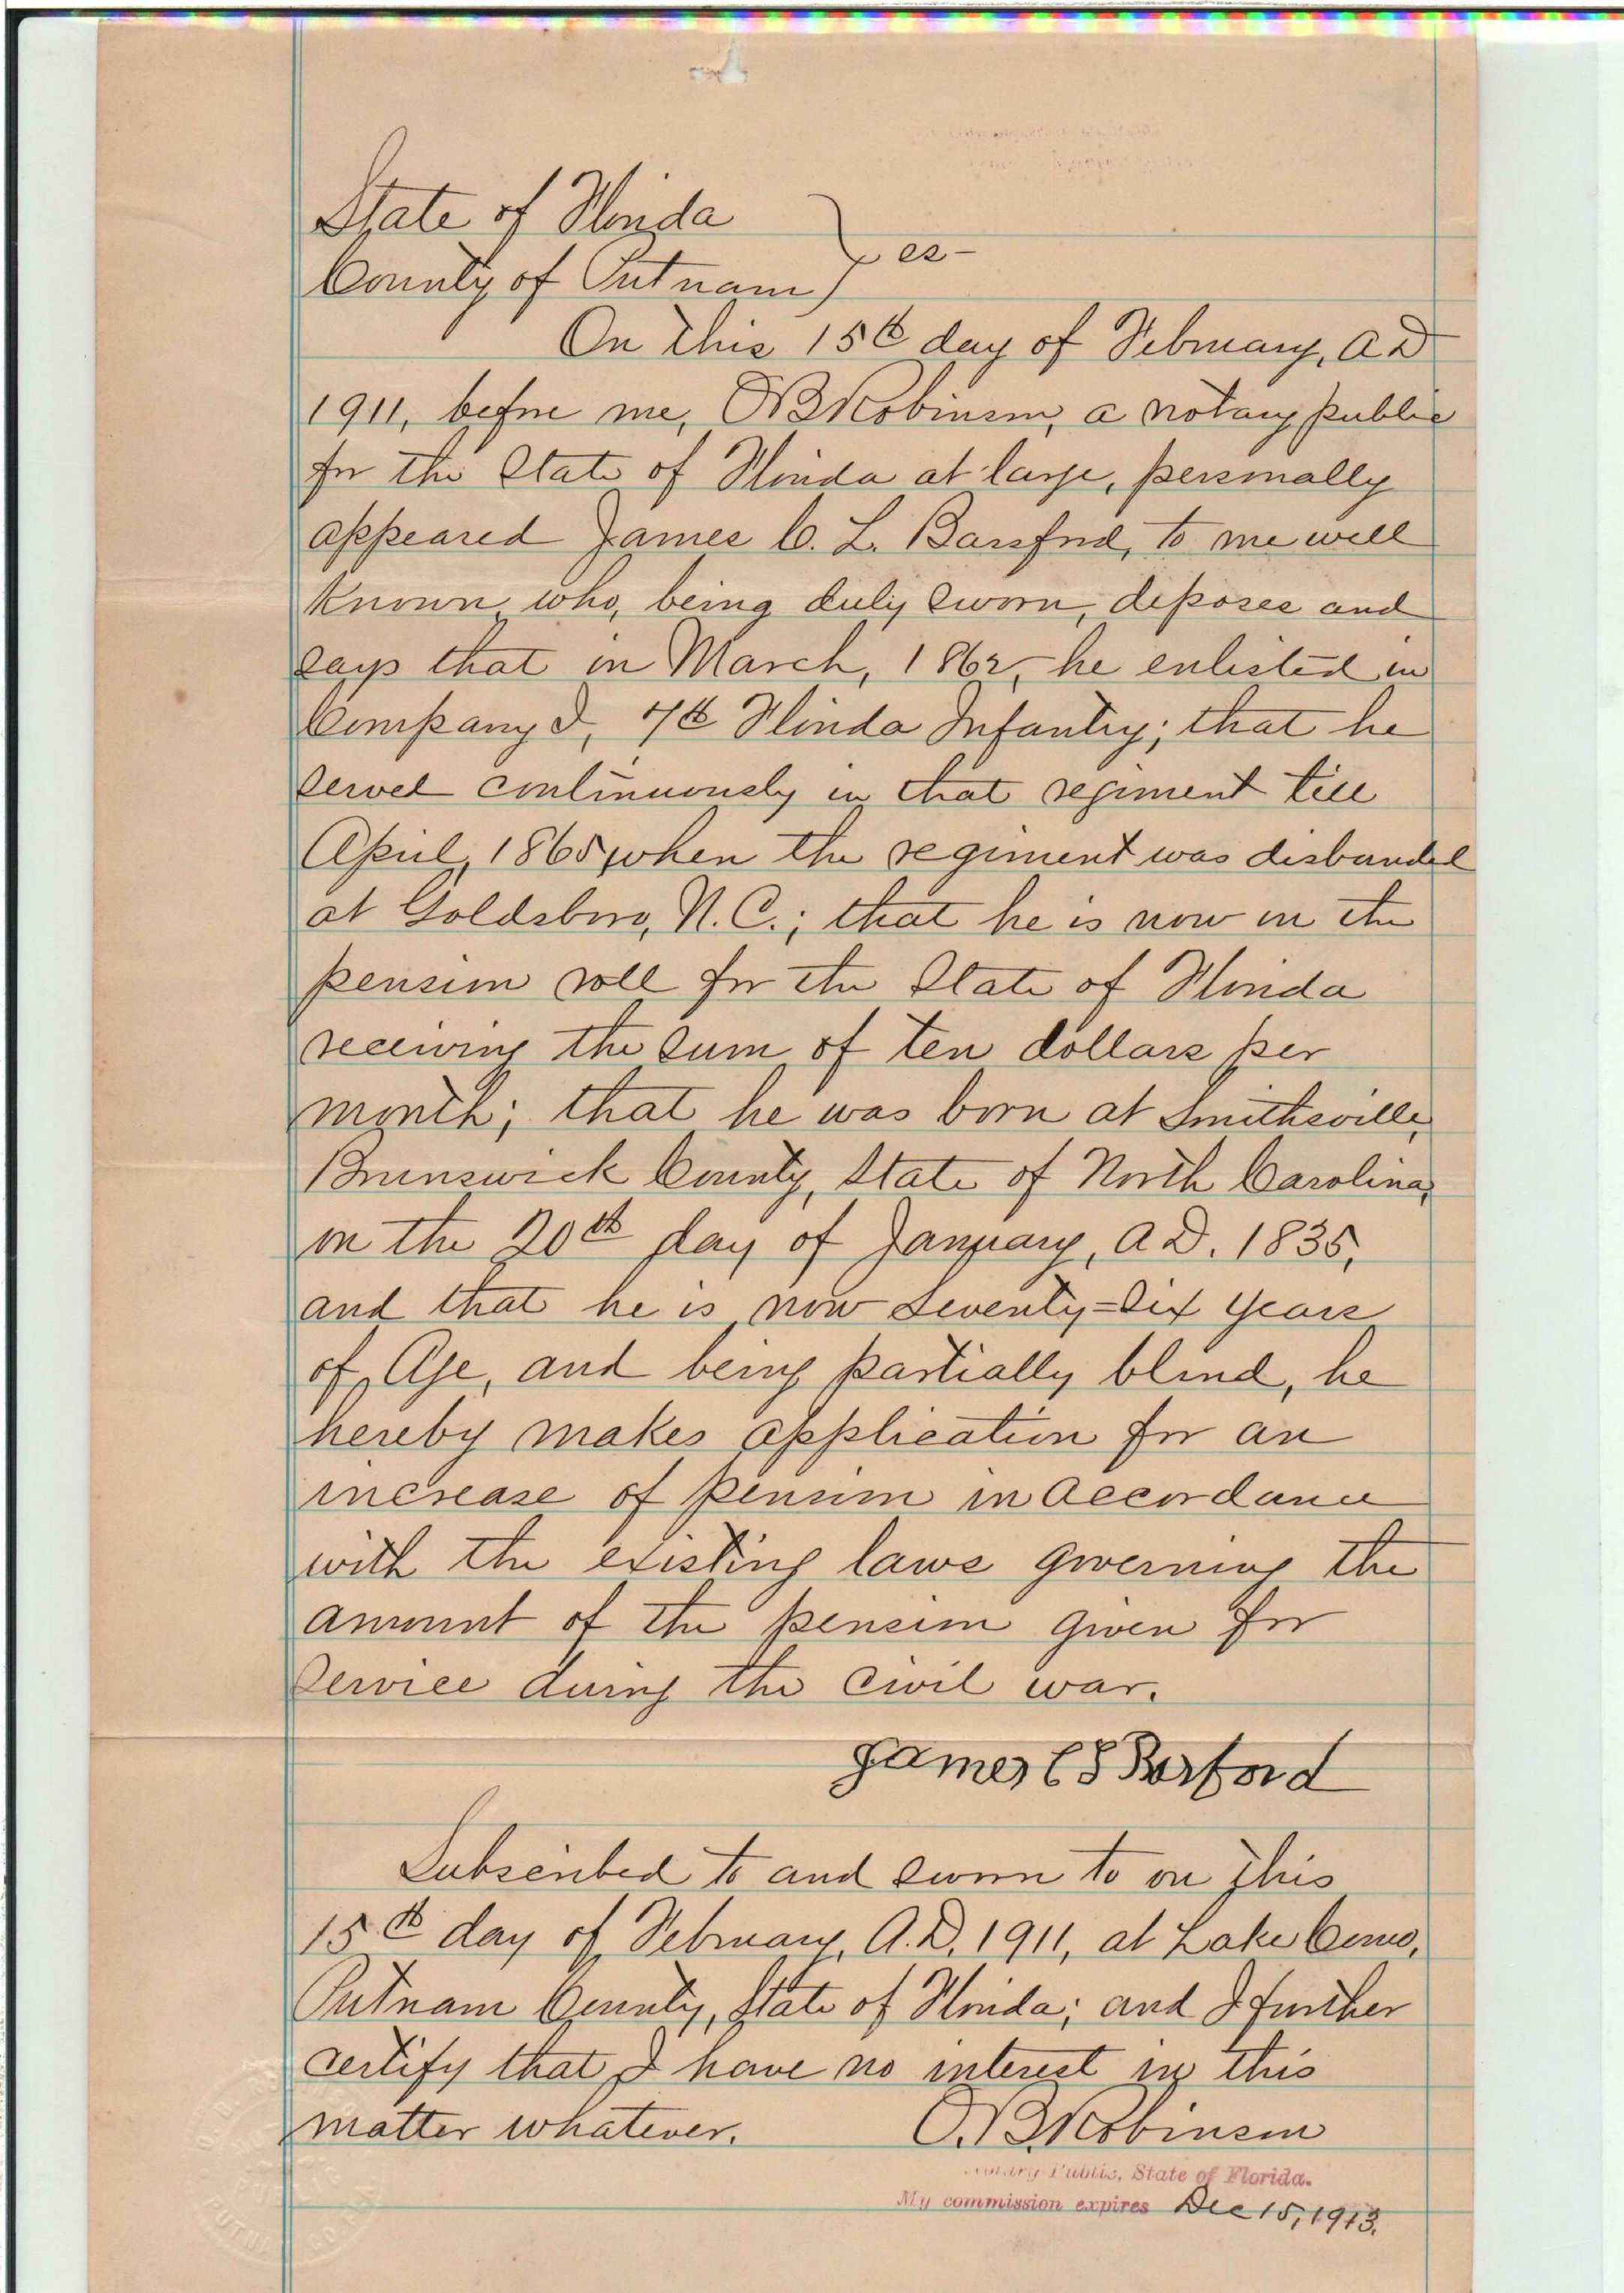 State of Florida
County of Putnam } ss-
On this 15th day of February, A D
1911, before me, O B Robinson, a notary public
for the State of Florida at large, personally
appeared James C. L. Bassford, to me well
known, who, being duly sworn, deposes and
says that in March, 1862, he enlisted in
Company I, 7th Florida Infantry; that he
served continuously in that regiment till
April, 1865, when the regiment was disbanded
at Goldsboro, N.C.; that he is now on the
pension roll for the State of Florida
receiving the sum of ten dollars per
month; that he was born at Smithsville,
Brunswick County, State of North Carolina,
on the 20th day of January, A.D. 1835,
and that he is now seventy=six years
of Age, and being partially blind, he
hereby makes application for an
increase of pension in accordance
with the existing laws governing the
amount of the pension given for
service during the civil war.
James C L
Subscribed to and sworn to on this
15th day of February, A.D. 1911, at Lake Como,
Putnam County, State of Florida; and I further
certify that I have no interest in this
matter whatever. O. B. Robinson
Notary Public, State of Florida.
My commission expires Dec 15, 1913.